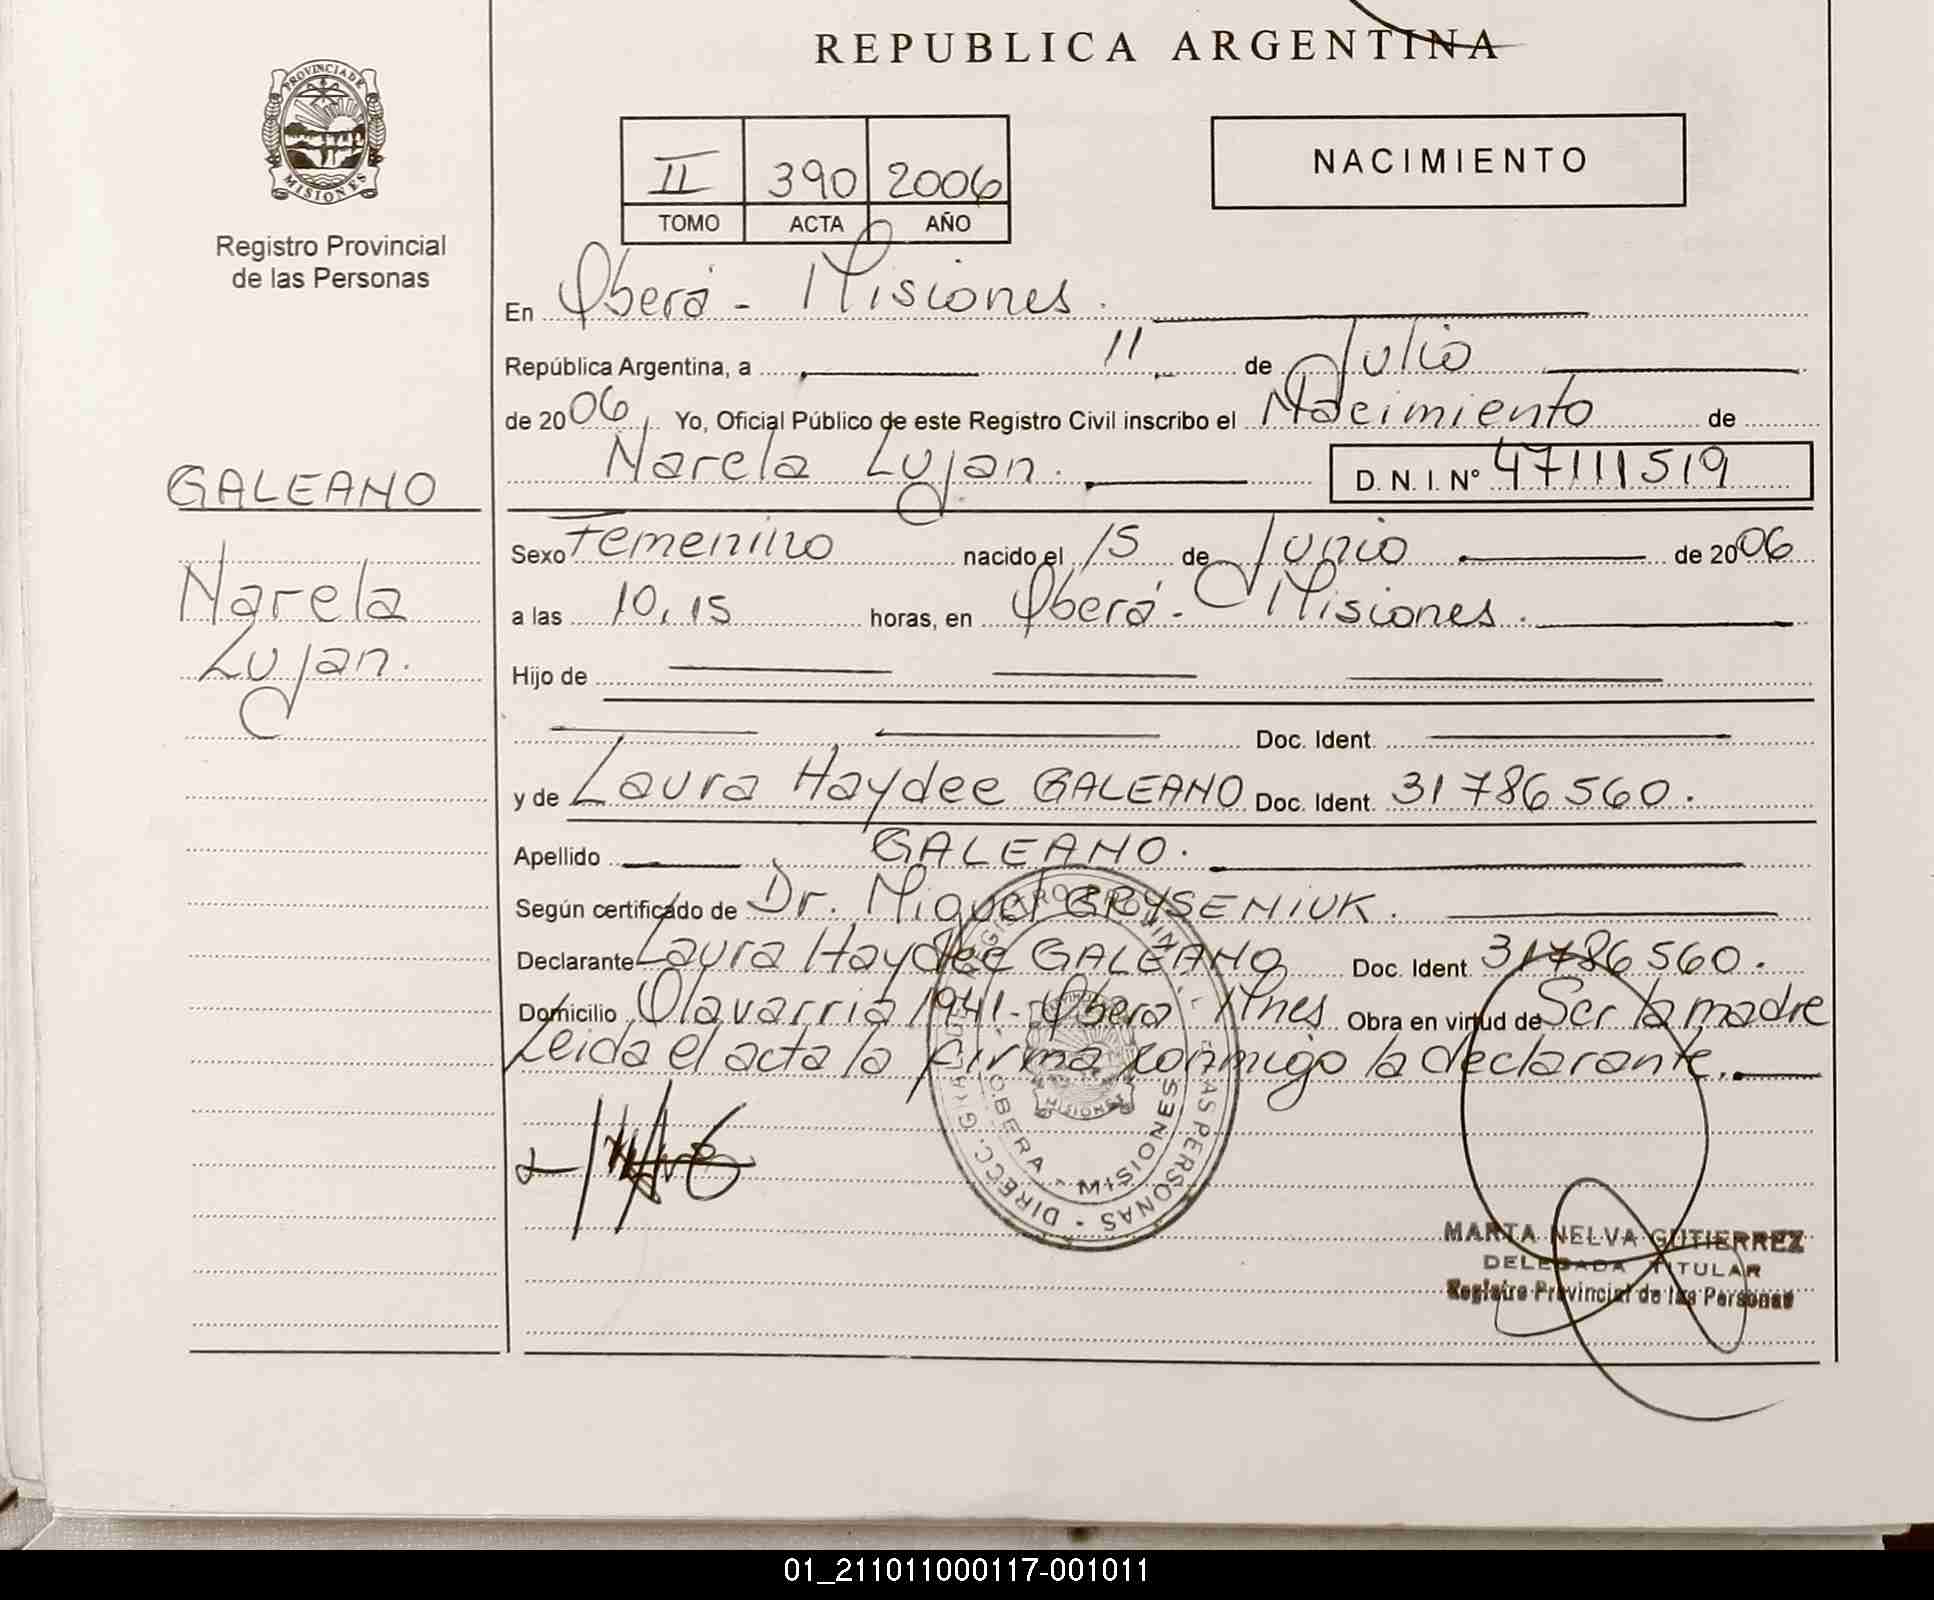 REPUBLICA ARGENTINA
PROVINCIA DE
MISIONES
Registro Provincial
de las Personas
II 390 2006
TOMO ACTA AÑO
NACIMIENTO
En Oberá - Misiones.
República Argentina, a 11 de Julio
de 2006 Yo, Oficial Público de este Registro Civil inscribo el Nacimiento de
Narela Lujan. D. N. I. Nº 47111519
GALEANO
Narela
Lujan.
Sexo Femenino nacido el 15 de Junio de 2006
a las 10,15 horas, en Oberá - Misiones.
Hijo de
Doc. Ident.
y de Laura Haydee GALEANO Doc. Ident. 31786560.
Apellido GALEANO.
Según certificado de Dr. Miguel GRYSENIUK.
Declarante Laura Haydee GALEANO Doc. Ident 31786560.
Domicilio Olavarria 1941 - Oberá - Mnes Obra en virtud de Ser la madre
Leida el acta la firma conmigo la declarante.
OBERA - MISIONES
MISIONES
MARTA NELVA GUTIERREZ
DELEGADA TITULAR
Registro Provincial de las Personas
01_211011000117-001011